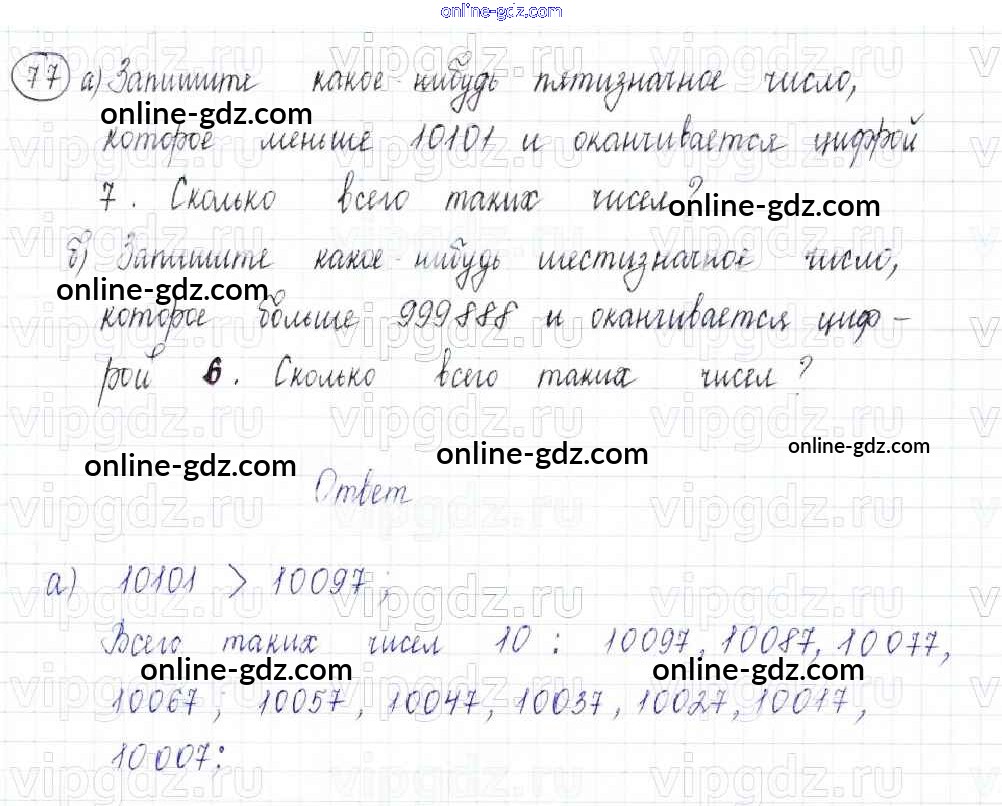 online-gdz.com
77 а) Запишите какое-нибудь пятизначное число,
online-gdz.com
которое меньше 10101 и оканчивается цифрой
7. Сколько всего таких чисел?
online-gdz.com
б) Запишите какое-нибудь шестизначное число,
online-gdz.com
которое больше 999888 и оканчивается циф-
рой 6. Сколько всего таких чисел?
vipgdz.ru
online-gdz.com
online-gdz.com
online-gdz.com
Ответ
online-gdz.com
а) 10101 > 10097;
Всего таких чисел 10: 10097, 10087, 10077,
online-gdz.com
online-gdz.com
10067; 10057, 10047, 10037, 10027, 10017,
10007: